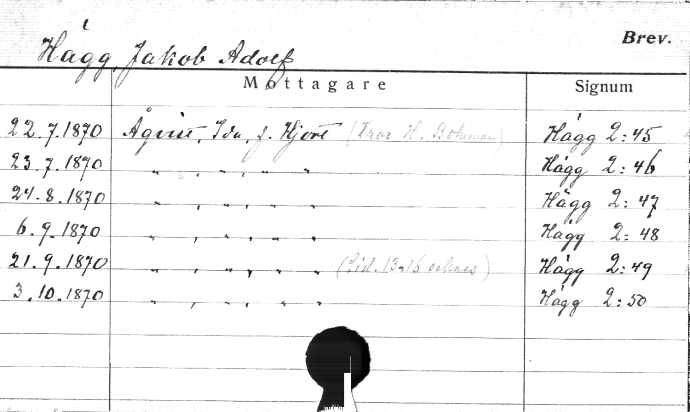 Brev.
Hägg, Jakob Adolf
Mottagare Signum
22.7.1870 Åqvist, Ida, f. Hjort (Tros H. Bohman) Hägg 2:45
23.7.1870 " , " , " " Hägg 2:46
24.8.1870 " , " , " " Hägg 2:47
6.9.1870 " , " , " " Hägg 2:48
21.9.1870 " , " , " " (Sid. 13-16 saknas) Hägg 2:49
3.10.1870 " , " , " " Hägg 2:50